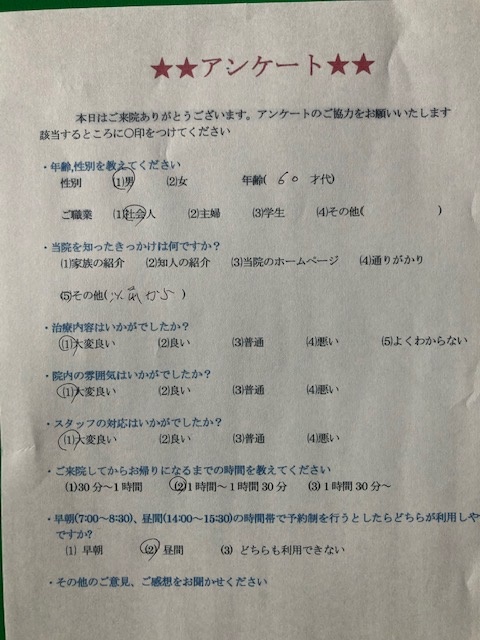 ★★アンケート★★
本日はご来院ありがとうございます。アンケートのご協力をお願いいたします
該当するところに〇印をつけてください
・年齢,性別を教えてください
性別 (1)男 (2)女 年齢( 60 才代)
ご職業 (1)社会人 (2)主婦 (3)学生 (4)その他( )
・当院を知ったきっかけは何ですか?
(1)家族の紹介 (2)知人の紹介 (3)当院のホームページ (4)通りがかり
(5)その他(以前から )
・治療内容はいかがでしたか?
(1)大変良い (2)良い (3)普通 (4)悪い (5)よくわからない
・院内の雰囲気はいかがでしたか?
(1)大変良い (2)良い (3)普通 (4)悪い
・スタッフの対応はいかがでしたか?
(1)大変良い (2)良い (3)普通 (4)悪い
・ご来院してからお帰りになるまでの時間を教えてください
(1)30分～1時間 (2)1時間～1時間30分 (3)1時間30分～
・早朝(7:00~8:30)、昼間(14:00~15:30)の時間帯で予約制を行うとしたらどちらが利用しや
ですか?
(1) 早朝 (2) 昼間 (3) どちらも利用できない
・その他のご意見、ご感想をお聞かせください